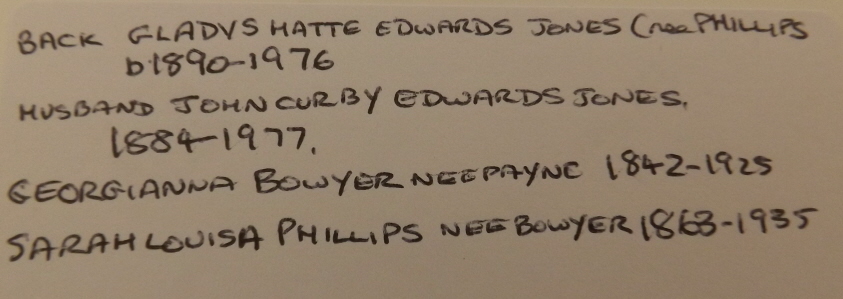 BACK GLADYS HATTE EDWARDS JONES (nee PHILLIPS
b1890-1976
HUSBAND JOHN CURBY EDWARDS JONES.
1884-1977.
GEORGIANNA BOWYER NEE PAYNE 1842-1925
SARAH LOUISA PHILLIPS NEE BOWYER 1863-1935